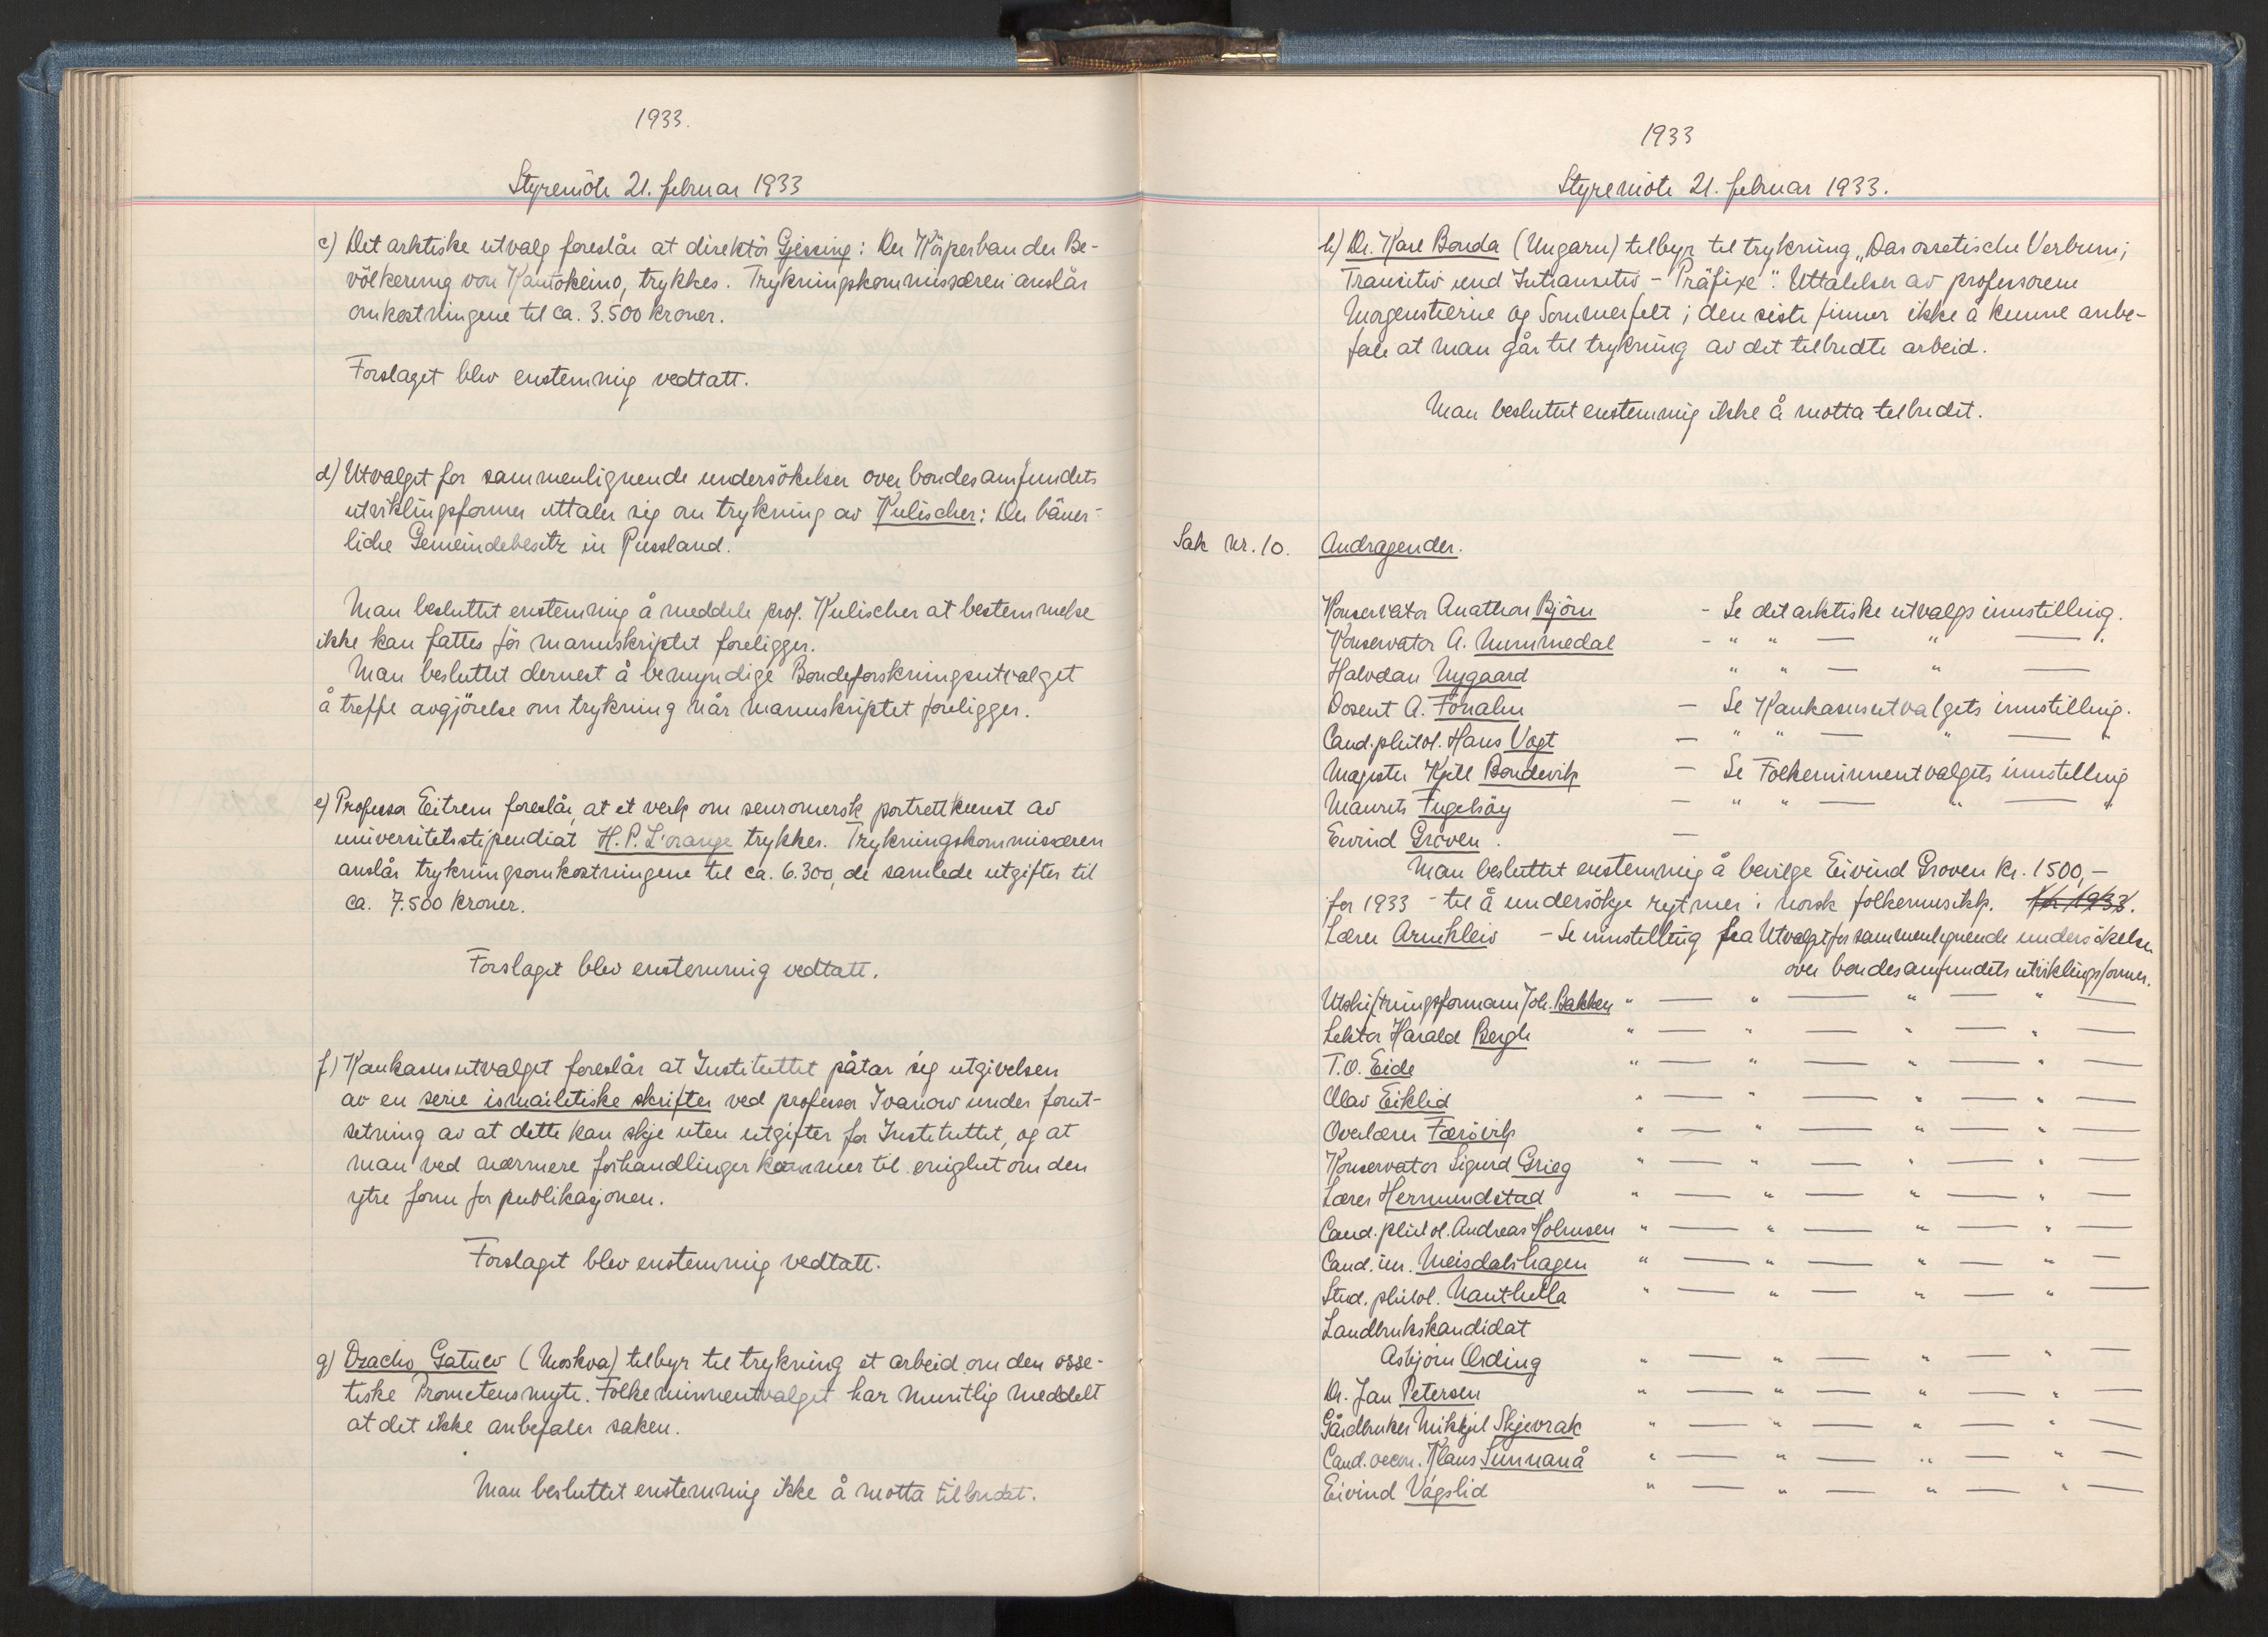 1933.
Styremöte 21. februar 1933
c) Det arktiske utvalg foreslår at direktör Gjessing: Der Körperbau der Be-
völkerung von Kautokeino, trykkes. Trykningskommissæren anslår
omkostningene til ca. 3.500 kroner.
Forslaget blev enstemmig vedtatt.
d) Utvalget for sammenlignende undersökelser over bondesamfundets
utviklingsformer uttaler sig om trykning av Kulischer: Der bäuer-
liche Gemeindebesitz in Russland.
Man besluttet enstemmig å meddele prof. Kulischer at bestemmelse
ikke kan fattes för manuskriptet foreligger.
Man besluttet dernest å bemyndige Bondeforskningsutvalget
å treffe avgjörelse om trykning når manuskriptet foreligger.
e) Professor Eitrem foreslår, at et verk om senromersk portrettkunst av
universitetsstipendiat H. P. L'orange trykkes. Trykningskommissæren
anslår trykningsomkostningene til ca. 6.300, de samlede utgifter til
ca. 7.500 kroner.
Forslaget blev enstemmig vedtatt.
f) Kaukasusutvalget foreslår at Instituttet påtar sig utgivelsen
av en serie ismailitiske skrifter ved professor Ivanow under forut-
setning av at dette kan skje uten utgifter for Instituttet, og at
man ved nærmere forhandlinger kommer til enighet om den
ytre form for publikasjonen.
Forslaget blev enstemmig vedtatt.
g) Dzacho Gatuev (Moskva) tilbyr til trykning et arbeid om den osse-
tiske Prometeusmyte. Folkeminneutvalget har muntlig meddelt
at det ikke anbefaler saken.
Man besluttet enstemmig ikke å motta tilbudet.
1933
Styremöte 21. februar 1933.
h) Dr. Karl Bouda (Ungarn) tilbyr til trykning „Das ossetische Verbum;
Transitiv und Intransitiv - Präfixe". Uttalelser av professorene
Morgenstierne og Sommerfelt; den siste finner ikke å kunne anbe-
fale at man går til trykning av det tilbudte arbeid.
Man besluttet enstemmig ikke å motta tilbudet.
Sak nr. 10. Andragender.
Konservator Anathon Björn - Se det arktiske utvalgs innstilling.
Konservator A. Nummedal - " " — " — ".
Halvdan Nygaard " " — " —
Dosent A. Fonahn — Se Kaukasusutvalgets innstilling.
Cand. philol. Hans Vogt — " " — " — "
Magister Kjell Bondevik — Se Folkeminneutvalgets innstilling
Maurits Fugelsöy — " " — " — "
Eivind Groven. —
Man besluttet enstemmig å bevilge Eivind Groven kr. 1500,-
for 1933 - til å undersökje rytmer i norsk folkemusikk. for 1933.
Lærer Arneklev - Se innstilling fra Utvalget for sammenlignende undersökelser
over bondesamfundets utviklingsformer.
Utskiftningsformann Joh. Bakken " — " — " — " —
Lektor Harald Bergh " — " — " — " —
T. O. Eide " — " — " — " —
Olav Eiklid " — " — " — " —
Overlærer Færövik " — " — " — " —
Konservator Sigurd Grieg " — " — " — " —
Lærer Hermundstad " — " — " — " —
Cand. philol. Andreas Holmsen " — " — " — " —
Cand. jur. Meisdalshagen " — " — " — " —
Stud. philol. Nauthella " — " — " — " —
Landbrukskandidat
Asbjørn Ording " — " — " — " —
Dr. Jan Petersen " — " — " — " —
Gårdbruker Mikkjel Skjevrak " — " — " — " —
Cand. oecon. Klaus Sunnanå " — " — " — " —
Eivind Vågslid " — " — " — " —